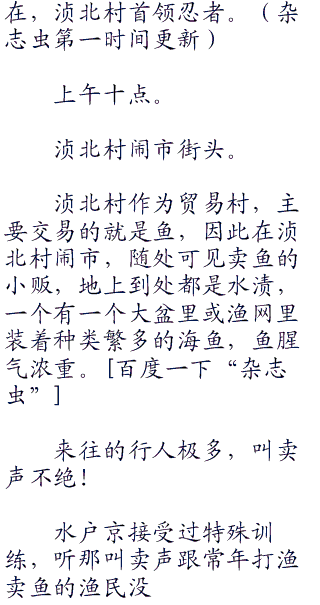 在，浈北村首领忍者。（杂
志虫第一时间更新）
上午十点。
浈北村闹市街头。
浈北村作为贸易村，主
要交易的就是鱼，因此在浈
北村闹市，随处可见卖鱼的
小贩，地上到处都是水渍，
一个有一个大盆里或渔网里
装着种类繁多的海鱼，鱼腥
气浓重。[百度一下“杂志
虫”]
来往的行人极多，叫卖
声不绝！
水户京接受过特殊训
练，听那叫卖声跟常年打渔
卖鱼的渔民没